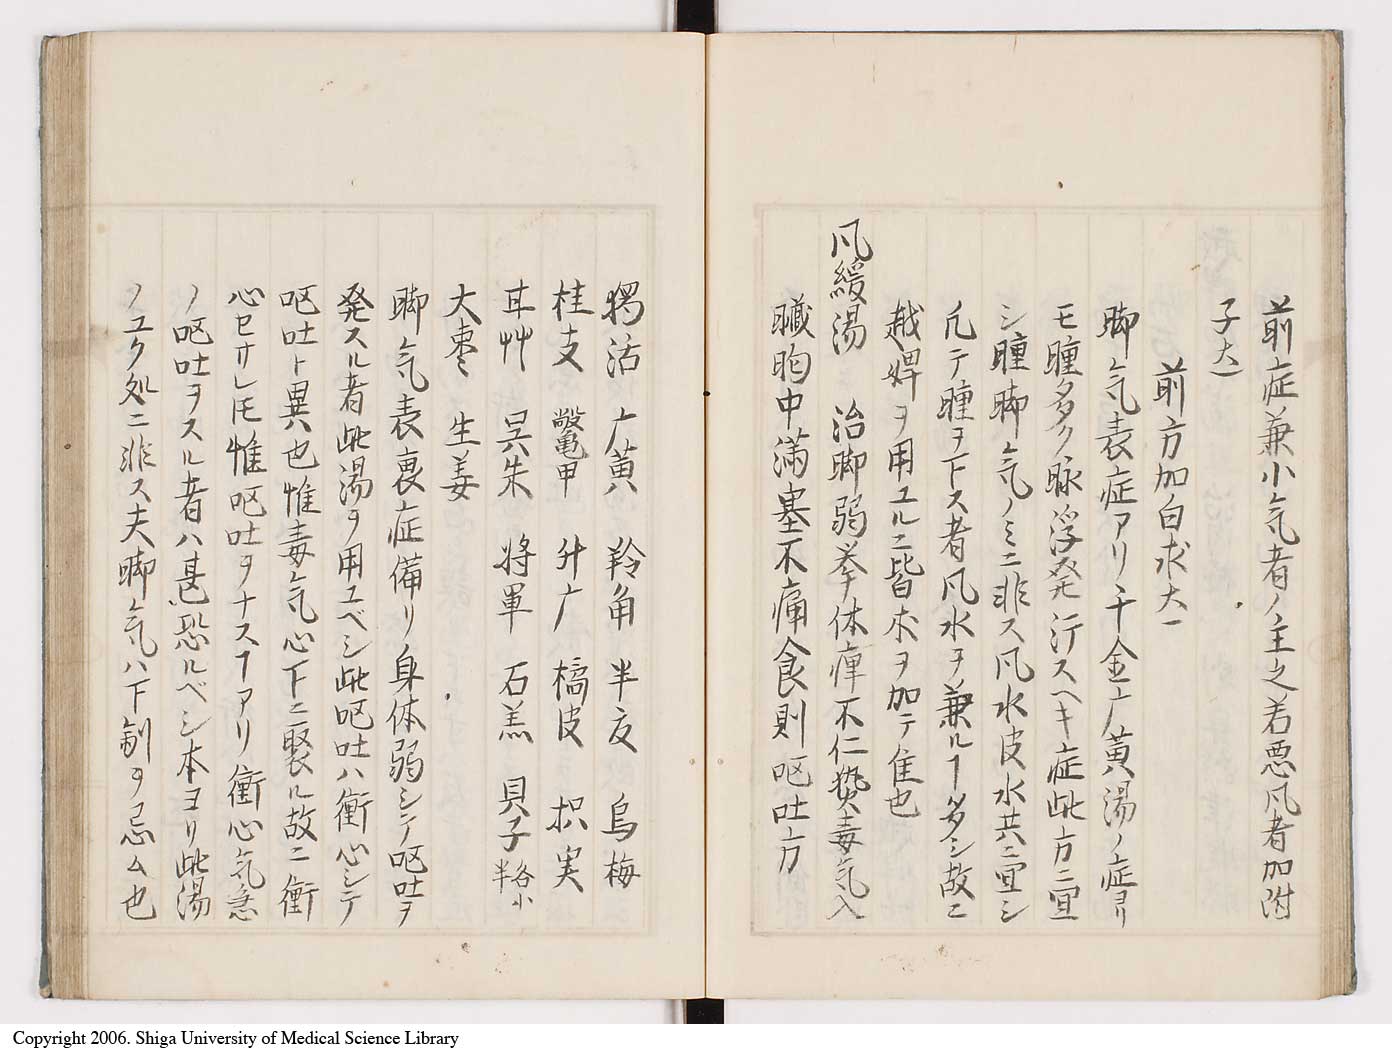 前症兼小気者ノ主之若悪風者加附
子大一
前方加白朮大一
脚気表症アリ千金广黄湯ノ症ヨリ
モ腫多ク脉浮発汗スヘキ症此方ニ宜
シ腫脚気ノミニ非ス風水皮水共ニ宜シ
凡テ腫ヲ下ス者風水ヲ兼ルヿ多シ故ニ
越婢ヲ用ユルニ皆朮ヲ加テ佳也
風緩湯 治脚弱挙体痺不仁熱毒気入
臓胸中満塞不痛食則嘔吐方
独活 广黄 羚角 半夏 烏梅
桂支 鼈甲 升广 橘皮 枳実
甘艸 呉朱 将軍 石羔 貝子各小半
大棗 生姜
脚気表裏症備リ身体弱シテ嘔吐ヲ
発スル者此湯ヲ用ユベシ此嘔吐ハ衝心シテ
嘔吐ト異也惟毒気心下ニ襲ル故ニ衝
心セサレ𪜈惟嘔吐ヲナスヿアリ衝心気急
ノ嘔吐ヲスル者ハ甚恐ルベシ本ヨリ此湯
ノユク処ニ非ス夫脚気ハ下剤ヲ忌ム也
Copyright 2006. Shiga University of Medical Science Library